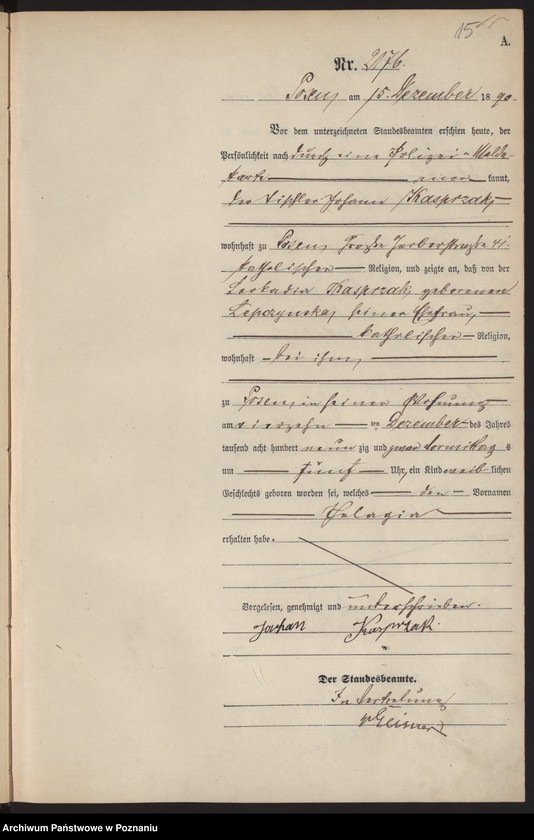 15
A.
Nr. 2176.
Posen, am 15. Dezember 1890
Vor dem unterzeichneten Standesbeamten erschien heute, der
Persönlichkeit nach durch eine Polizei-Melde-
karte kannt,
der Tischler Johann Kasprzak,
wohnhaft zu Posen, Große Gerberstraße 41.
katholischer Religion, und zeigte an, daß von der
Leokadia Kasprzak, geborenen
Lepczynska, seiner Ehefrau,
katholischer Religion,
wohnhaft bei ihm,
zu Posen, in seiner Wohnung
am vierzehn ten Dezember des Jahres
tausend acht hundert neunzig und zwar Vormittags
um fünf Uhr, ein Kind weiblichen
Geschlechts geboren worden sei, welches den Vornamen
Pelagia
erhalten habe.
Vorgelesen, genehmigt und unterschrieben.
Johan Kasprzak.
Der Standesbeamte.
In Vertretung
Archiwum Państwowe w Poznaniu